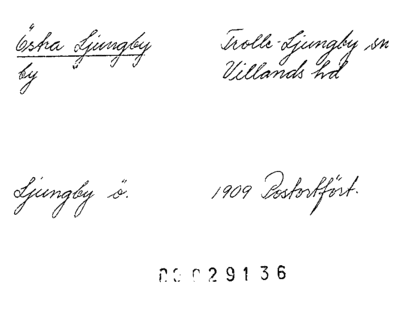 Östra Ljungby Trolle-Ljungby sn
by Villands hd
Ljungby ö. 1909 Postortfört.
29136